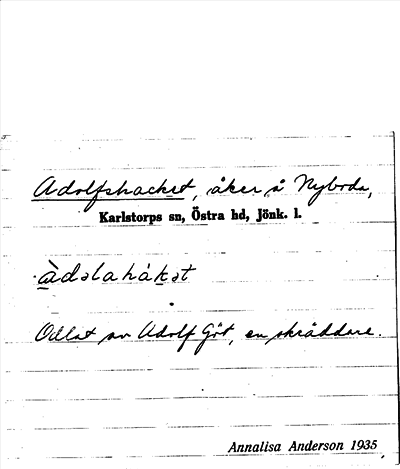 Adolfshacket, åker å Nyboda,
Karlstorps sn, Östra hd, Jönk. l.
àdəlahákət
Odlat av Adolf Göt, en skräddare.
Annalisa Anderson 1935